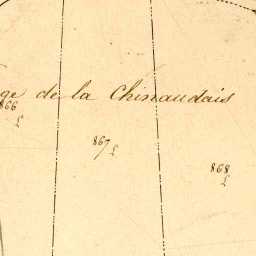 ge de la Chinaudais
866
L
867
L
868
L